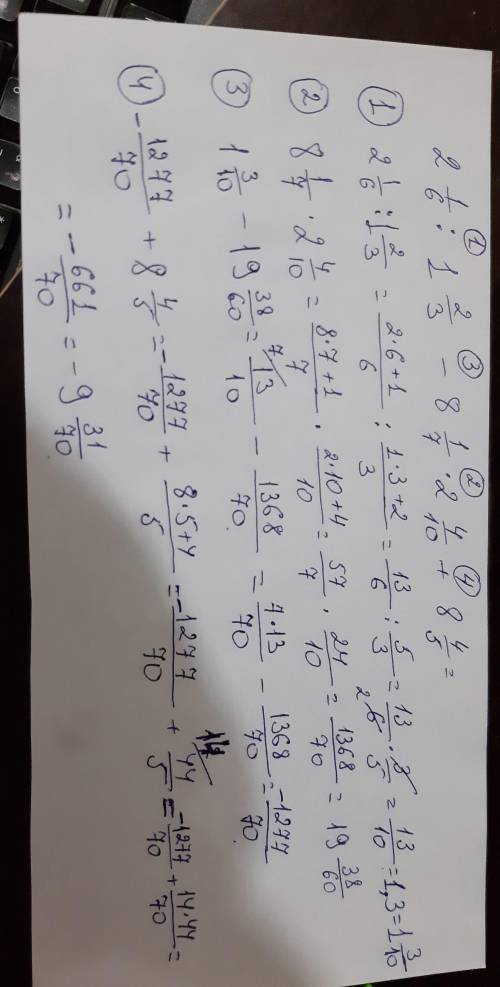 2 1/6 : 1 2/3 - 8 1/7 · 2 4/10 + 8 4/5 =
① ③ ② ④
① 2 1/6 : 1 2/3 = (2·6+1)/6 : (1·3+2)/3 = 13/6 : 5/3 = 13/6 · 3/5 = 13/10 = 1,3 = 1 3/10
2
② 8 1/7 · 2 4/10 = (8·7+1)/7 · (2·10+4)/10 = 57/7 · 24/10 = 1368/70 = 19 38/60
③ 1 3/10 - 19 38/60 = 7/ 13/10 - 1368/70 = 7·13/70 - 1368/70 = -1277/70
④ -1277/70 + 8 4/5 = -1277/70 + (8·5+4)/5 = -1277/70 + 14/ 44/5 = -1277/70 + 14·44/70 =
= -661/70 = -9 31/70